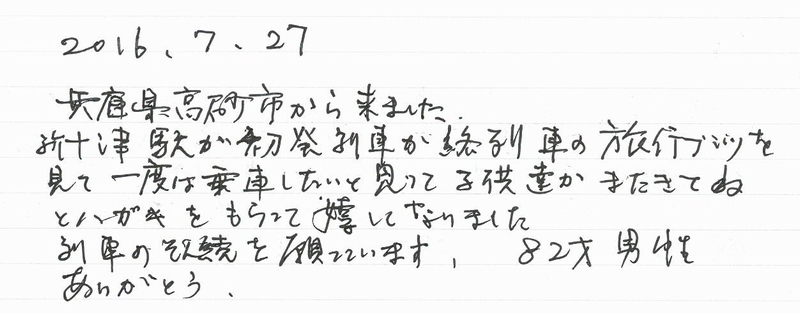 2016.7.27
兵庫県高砂市から来ました.
新十津駅が初発列車が終列車の旅行ブックを
見て一度は乗車したいと思って子供達がまたきてね
とハガキをもらって嬉しくなりました
列車の存続を願っています. 82才男性
ありがとう.